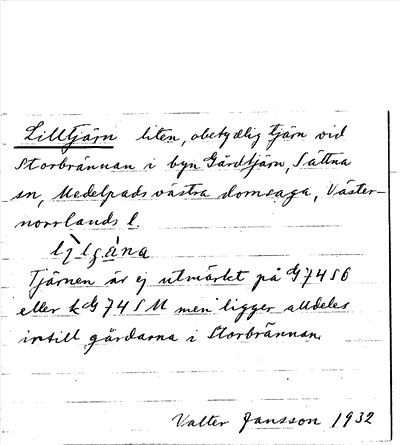 Lilltjärn liten, obetydlig tjärn vid
Storbrännan i byn Gårdtjärn, Sättna
sn, Medelpads västra domsaga, Väster-
norrlands l.
Tjärnen är ej utmärkt på G 74 S6
eller k G 74 S M men ligger alldeles
intill gårdarna i Storbrännan.
Valter Jansson 1932